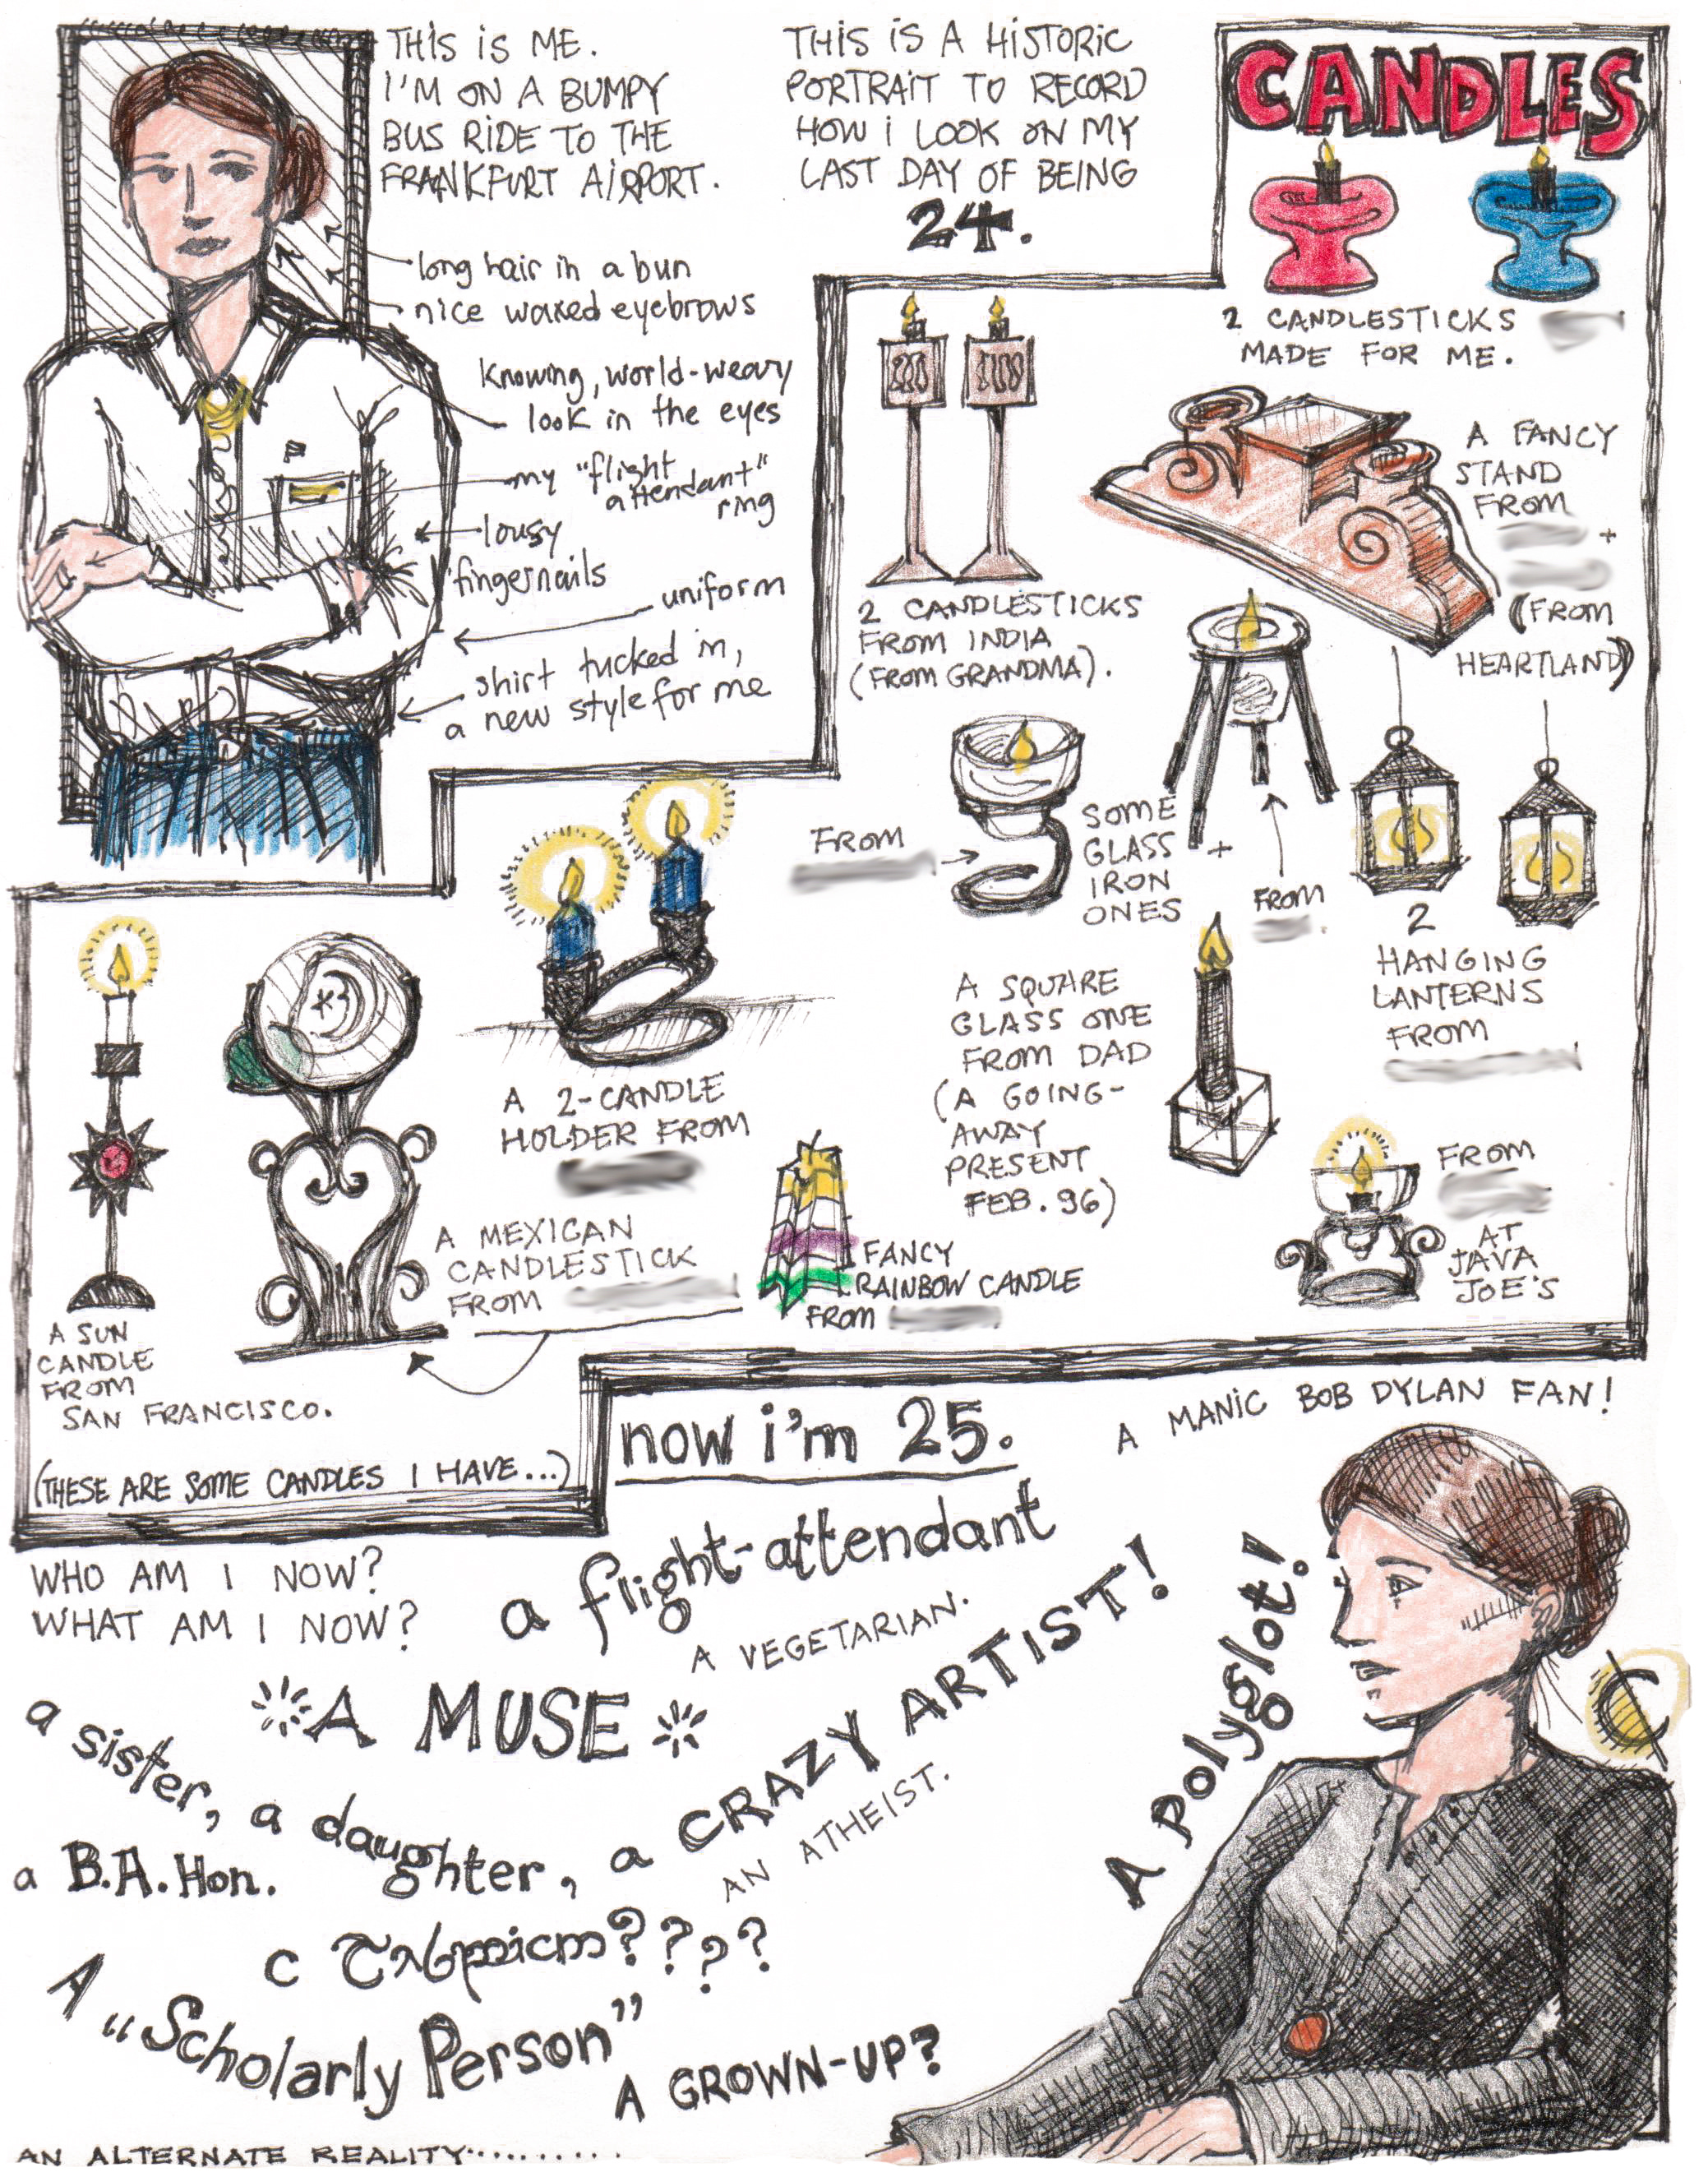 THIS IS ME.
I'M ON A BUMPY
BUS RIDE TO THE
FRANKFURT AIRPORT.
THIS IS A HISTORIC
PORTRAIT TO RECORD
HOW I LOOK ON MY
LAST DAY OF BEING
24.
long hair in a bun
nice waxed eyebrows
knowing, world-weary
look in the eyes
my "flight
attendant"
ring
lousy
fingernails
uniform
shirt tucked in,
a new style for me
CANDLES
2 CANDLESTICKS
MADE FOR ME.
2 CANDLESTICKS
FROM INDIA
(FROM GRANDMA).
A FANCY
STAND
FROM
+
(FROM
HEARTLAND)
FROM
SOME
GLASS +
IRON
ONES
FROM
2
HANGING
LANTERNS
FROM
A SQUARE
GLASS ONE
FROM DAD
(A GOING-
AWAY
PRESENT
FEB. 96)
FROM
AT
JAVA
JOE'S
A 2-CANDLE
HOLDER FROM
A MEXICAN
CANDLESTICK
FROM
FANCY
RAINBOW CANDLE
FROM
A SUN
CANDLE
FROM
SAN FRANCISCO.
(THESE ARE SOME CANDLES I HAVE...)
now i'm 25.
A MANIC BOB DYLAN FAN!
WHO AM I NOW?
WHAT AM I NOW?
a flight-attendant
A VEGETARIAN.
A MUSE
a sister, a daughter, a CRAZY ARTIST!
AN ATHEIST.
A polyglot!
a B.A. Hon.
A "Scholarly Person"
A GROWN-UP?
AN ALTERNATE REALITY..........